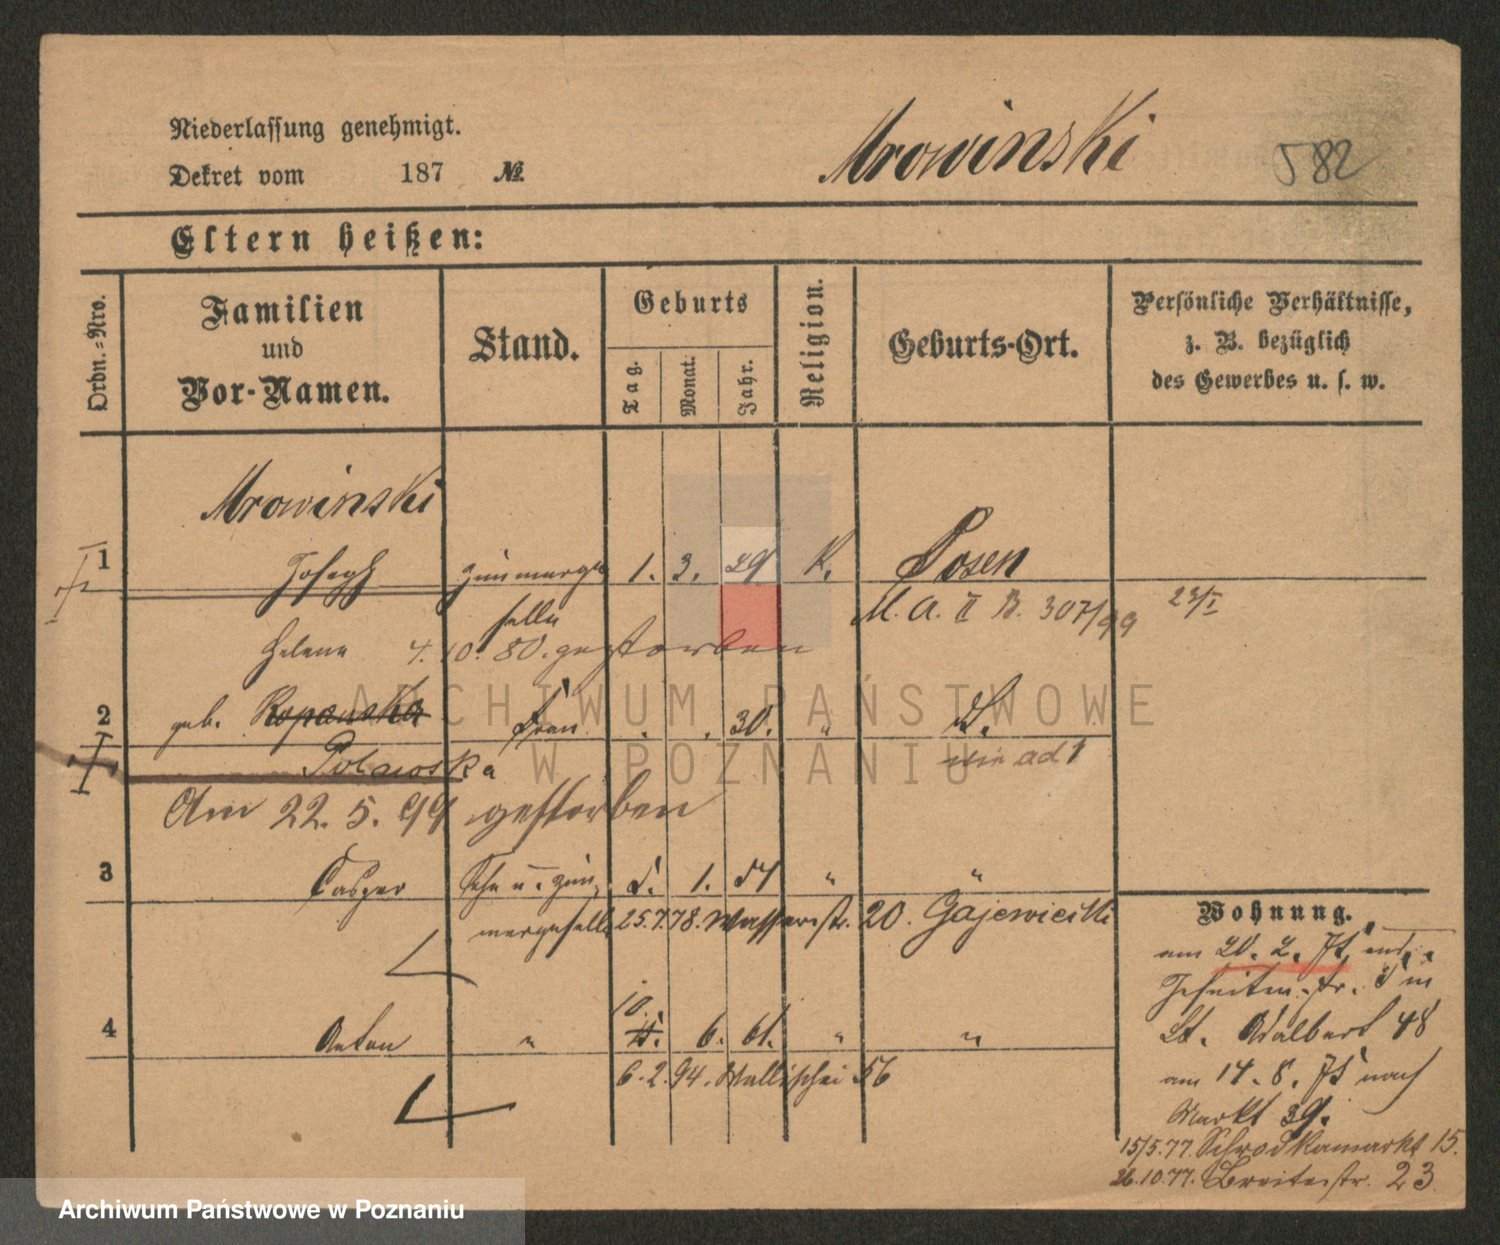 Niederlassung genehmigt.
Dekret vom 187 №
Mrowinski 582
Eltern heißen:
Ordn.=Nro.
Familien
und
Vor-Namen.
Stand.
Geburts
Tag.
Monat.
Jahr.
Religion.
Geburts-Ort.
Persönliche Verhältnisse,
z. B. bezüglich
des Gewerbes u. s. w.
Mrowinski
1 Joseph 1. 3. 29 K. Posen
M. A. II B. 307/99 23/I
Helene 4. 10. 80. gestorben
2 geb. Ropanska Frau 30. "
Polawska wie ad 1
Am 22. 5. 99 gestorben
3 Casper 1. " "
25.7.78. Wasserstr. 20.
4 Anton " 10. 6. 61. " "
6.2.94. Wallischei 56
Wohnung.
am 20. 2.
St. Adalbert 48
am 14. 8. nach
Markt 39.
15/5.77. Schrodkamarkt 15.
26.10.77. Breitestr. 23
ARCHIWUM PAŃSTWOWE
W POZNANIU
Archiwum Państwowe w Poznaniu